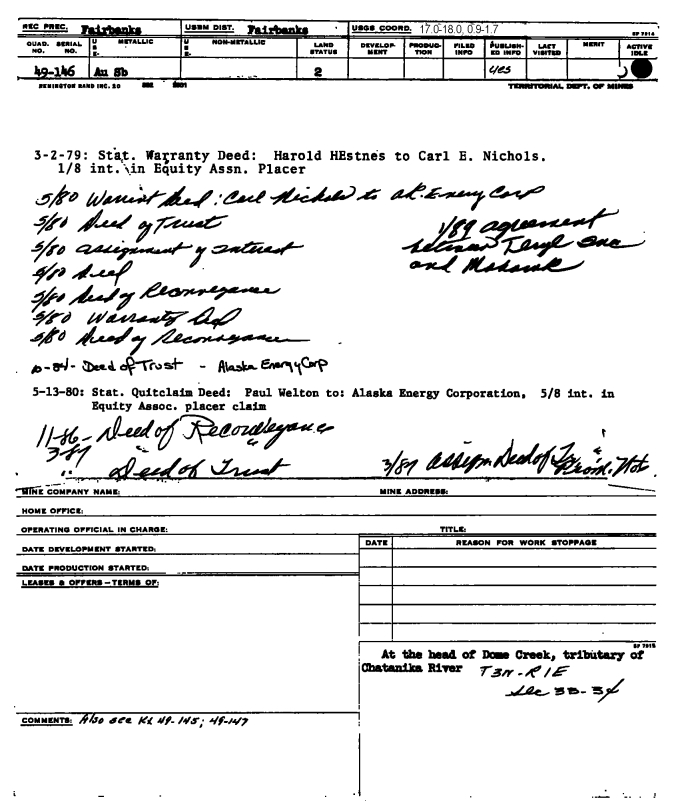 REC PREC. Fairbanks USBM DIST. Fairbanks USGS COORD. 17.0-18.0, 0.9-1.7 SF 7914
QUAD. NO. SERIAL NO. USE- METALLIC USE- NON-METALLIC LAND STATUS DEVELOP-MENT PRODUC-TION FILED INFO PUBLISH-ED INFO LAST VISITED MERIT ACTIVE IDLE
49-146 Au Sb 2 yes
REMINGTON RAND INC. 20 TERRITORIAL DEPT. OF MINES
3-2-79: Stat. Warranty Deed: Harold HEstnes to Carl E. Nichols.
1/8 int. in Equity Assn. Placer
5/80 Warrant Deed: Carl Nichols to AK. Energy Corp
5/80 Deed of Trust
1/89 agreement
5/80 assignment of Interest
between Teryl Inc
5/80 Deed
and Mohawk
5/80 Deed of Reconveyance
5/80 Warranty Deed
5/80 Deed of Reconveyance
10-84- Deed of Trust - Alaska Energy Corp
5-13-80: Stat. Quitclaim Deed: Paul Welton to: Alaska Energy Corporation, 5/8 int. in
Equity Assoc. placer claim
11-86- Deed of Reconveyance
3-87 " "
" Deed of Trust 3/87 assign. Deed of Tr & Prom. Not.
MINE COMPANY NAME: MINE ADDRESS:
HOME OFFICE:
OPERATING OFFICIAL IN CHARGE: TITLE:
DATE DEVELOPMENT STARTED: DATE REASON FOR WORK STOPPAGE
DATE PRODUCTION STARTED:
LEASES & OFFERS - TERMS OF:
SF 7915
At the head of Dome Creek, tributary of
Chatanika River T3N-R1E
Sec 33-34
COMMENTS: Also see KX 49-145; 49-147